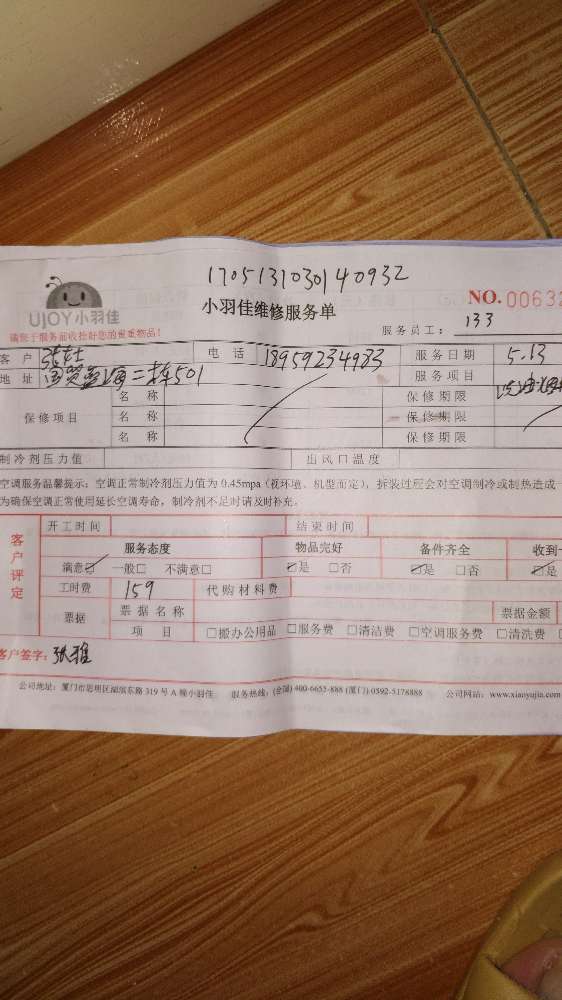 170513103014 0932
UJOY小羽佳
小羽佳维修服务单
NO. 0063
请您于服务前收拾好您的贵重物品!
服务员工: 133
客户 张女士 电话 18959234983 服务日期 5.13
地址 国贸蓝海二栋501 服务项目
保修项目 名称 保修期限
名称 保修期限
名称 保修期限
制冷剂压力值 出风口温度
空调服务温馨提示: 空调正常制冷剂压力值为 0.45mpa (视环境、机型而定), 拆装过程会对空调制冷或制热造成一
为确保空调正常使用延长空调寿命, 制冷剂不足时请及时补充。
客户评定
开工时间 结束时间
服务态度 物品完好 备件齐全 收到
满意☑ 一般□ 不满意□ ☑是 □否 ☑是 □否 ☑是
工时费 159 代购材料费
票据 票据名称 票据金额
项目 □搬办公用品 □服务费 □清洁费 □空调服务费 □清洗费
客户签字: 张雅
公司地址: 厦门市思明区湖滨东路 319 号 A 幢小羽佳 服务热线: (全国) 400-6655-888 (厦门) 0592-5178888 公司网站: www.xiaoyujia.com